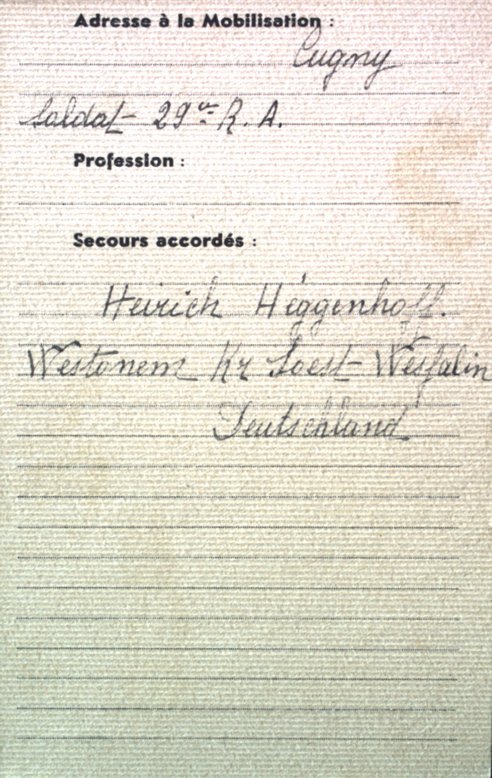 Adresse à la Mobilisation :
Cugny
Soldat 29e R. A.
Profession :
Secours accordés :
Heirich Héggenhoff.
Westonem Kr Soest-Wesfalin
Deutschland